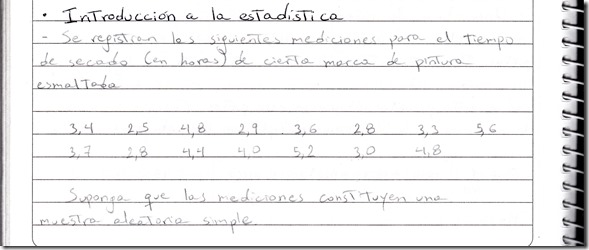 • Introducción a la estadística
- Se registran las siguientes mediciones para el tiempo
de secado (en horas) de cierta marca de pintura
esmaltada
3,4 2,5 4,8 2,9 3,6 2,8 3,3 5,6
3,7 2,8 4,4 4,0 5,2 3,0 4,8
Suponga que las mediciones constituyen una
muestra aleatoria simple.